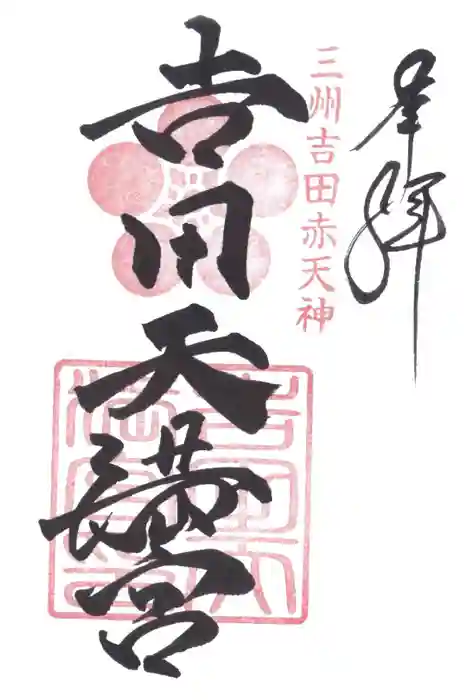 奉拝
三州吉田赤天神
吉田天満宮